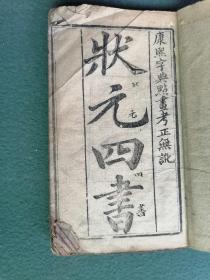 康熙字典點畫考正無訛
狀元四書